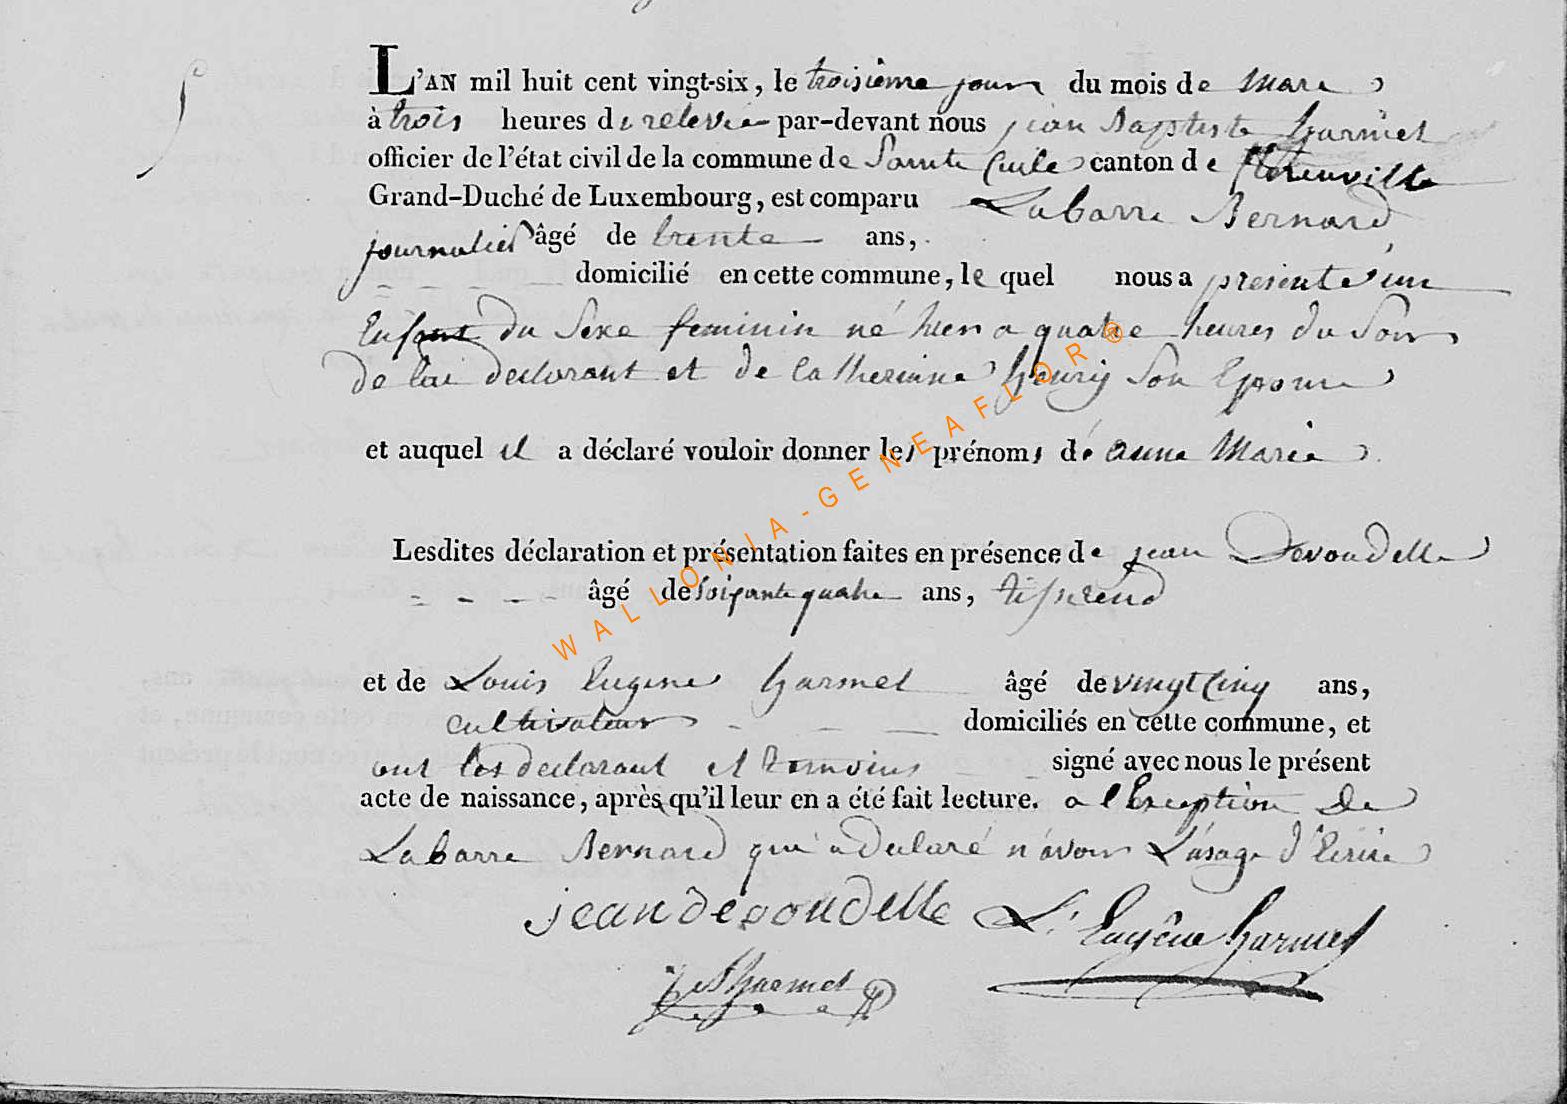 5
L'AN mil huit cent vingt-six, le troisième jour du mois de Mars
à trois heures de relevée par-devant nous jean Baptiste harmel
officier de l'état civil de la commune de Sainte Cecile canton de florenville
Grand-Duché de Luxembourg, est comparu Labarre Bernard
journalier âgé de trente ans,
domicilié en cette commune, le quel nous a presenté un
Enfant du Sexe feminin né hier a quatre heures du Soir
de lui declarant et de Catherinne henry Son Epouse
et auquel il a déclaré vouloir donner les prénoms de anne Marie
Lesdites déclaration et présentation faites en présence de jean Devoudelle
âgé de Soixante quatre ans, tisserend
et de Louis Eugene harmel âgé de vingt Cinq ans,
cultivateur domiciliés en cette commune, et
ont les declarant et temoins signé avec nous le présent
acte de naissance, après qu'il leur en a été fait lecture. a l'Exception De
Labarre Bernard qui a declaré n'avoir L'usage d'Ecrire
jean devoudelle L. Eugêne harmel
J Bt harmel
WALLONIA-GENEAFLOR®